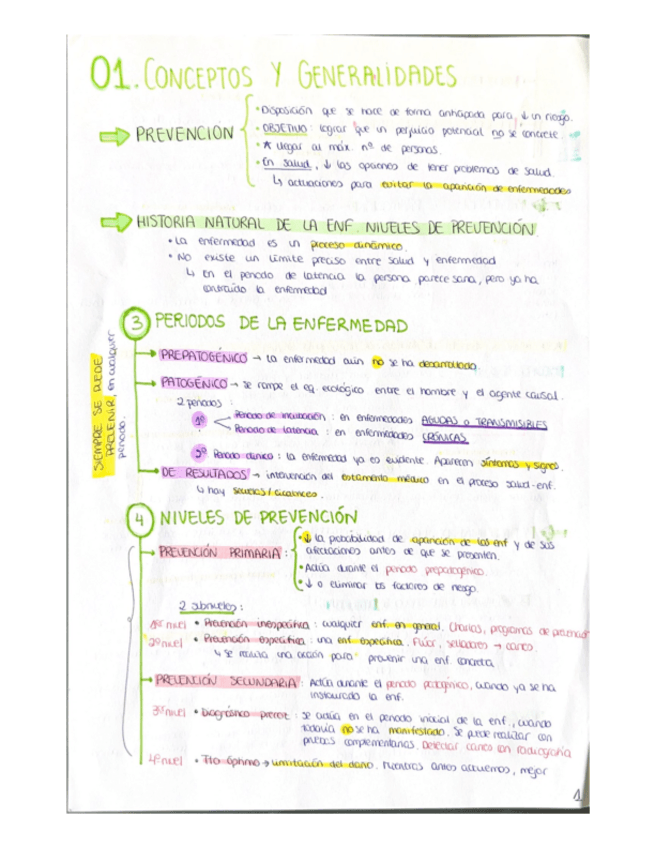 01. CONCEPTOS Y GENERALIDADES
PREVENCIÓN
• Disposición que se hace de forma anticipada para ↓ un riesgo.
• OBJETIVO: lograr que un perjuicio potencial no se concrete.
• * llegar al máx. nº de personas.
• En salud, ↓ las opciones de tener problemas de salud.
↳ actuaciones para evitar la aparición de enfermedades
HISTORIA NATURAL DE LA ENF. NIVELES DE PREVENCIÓN
• La enfermedad es un proceso dinámico.
• No existe un límite preciso entre salud y enfermedad
↳ En el periodo de latencia la persona parece sana, pero ya ha
contraído la enfermedad
3 PERIODOS DE LA ENFERMEDAD
SIEMPRE SE PUEDE
PREVENIR, en cualquier
periodo.
PREPATOGÉNICO → La enfermedad aún no se ha desarrollado.
PATOGÉNICO → se rompe el eq. ecológico entre el hombre y el agente causal.
2 periodos:
1º
Periodo de incubación: en enfermedades AGUDAS o TRANSMISIBLES
Periodo de latencia: en enfermedades CRÓNICAS
2º Periodo clínico: la enfermedad ya es evidente. Aparecen síntomas y signos.
DE RESULTADOS → intervención del estamento médico en el proceso salud-enf.
↳ hay secuelas/cicatrices.
4 NIVELES DE PREVENCIÓN
PREVENCIÓN PRIMARIA:
• ↓ la probabilidad de aparición de las enf y de sus
afectaciones antes de que se presenten.
• Actúa durante el periodo prepatogénico.
• ↓ o eliminar los factores de riesgo.
2 subniveles:
1er nivel • Prevención inespecífica: cualquier enf. en general. Charlas, programas de prevención
2º nivel • Prevención específica: una enf específica. Flúor, selladores → caries.
↳ Se realiza una acción para prevenir una enf. concreta
PREVENCIÓN SECUNDARIA: Actúa durante el periodo patogénico, cuando ya se ha
instaurado la enf.
3er nivel • Diagnóstico precoz: se actúa en el periodo inicial de la enf., cuando
todavía no se ha manifestado. Se puede realizar con
pruebas complementarias. Detectar caries con radiografía
4º nivel • Tto óptimo → limitación del daño. Mientras antes actuemos, mejor
1